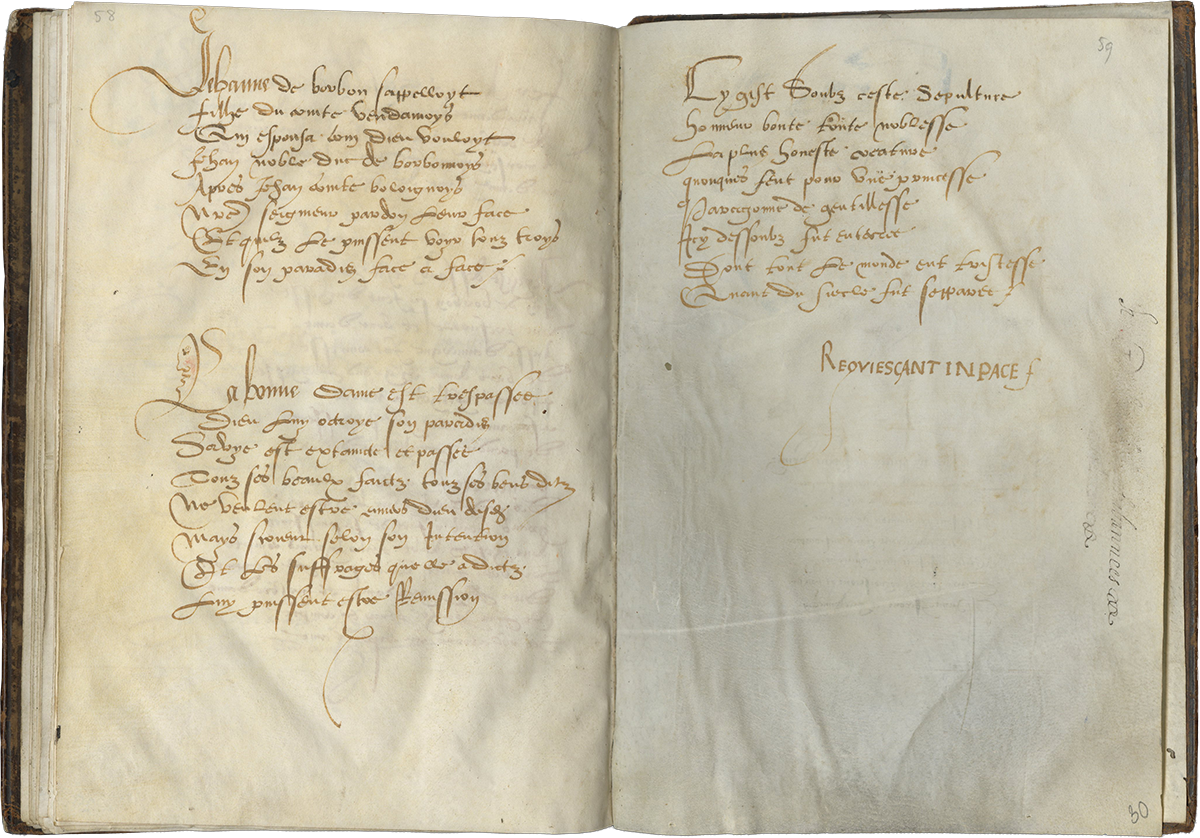 58
Jehanne de borbon sappelloyt
fille du comte vendamoys
Qui espousa com dieu vouloyt
Jehan noble duc de borbonnoys
Apres Jehan comte boloignoys
Nre seigneur pardon leur face
Et quilz le puissent voyr touz troys
En son paradiz face a face
La bonne dame est trespassee
Dieu luy octroye son paradiz
Sa vye est extainte et passee
Touz ses beaulx faictz touz ses bons ditz
Ne veulent estre envers dieu
Mays selon son Intention
Et les suffrages que ce a dictz
Luy puissent estre Remission
59
Cy gist Soubz ceste Sepulture
honneur bonte toute noblesse
La plus honeste creature
quonques feut pour une princesse
Parragonne de gentillesse
Icy dessoubz fut enterree
Dont tout le monde eut tristesse
Quant du siecle fut sepparee
REQVIESCANT IN PACE
30